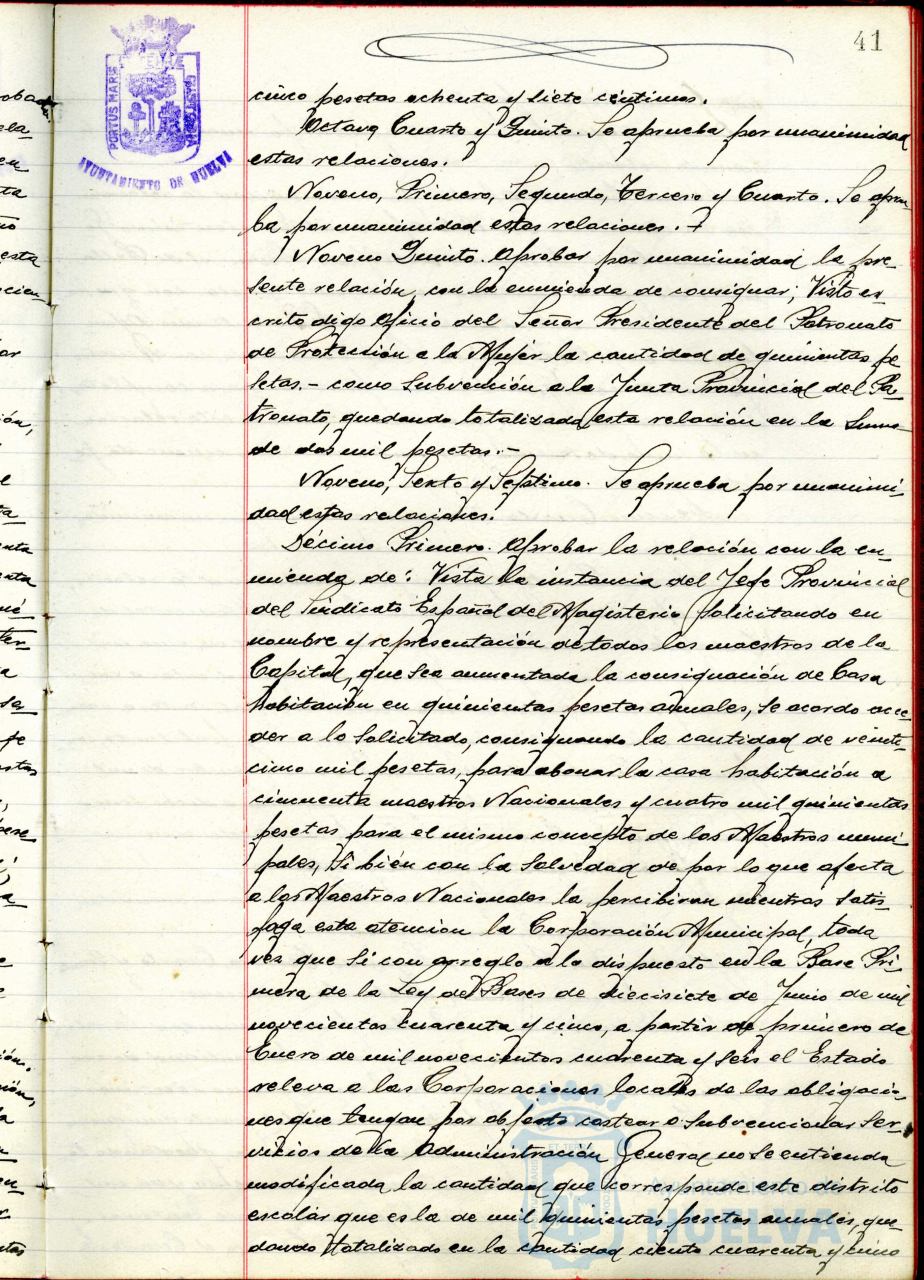 41
PORTUS MARIS
AYUNTAMIENTO DE HUELVA
cinco pesetas ochenta y siete céntimos.
Octavo Cuarto y Quinto. Se aprueba por unanimidad
estas relaciones.
Noveno, Primero, Segundo, Tercero y Cuarto. Se aprue-
ba por unanimidad estas relaciones.
Noveno Quinto. Aprobar por unanimidad la pre-
sente relación, con la enmienda de consignar; Visto es-
crito digo oficio del Señor Presidente del Patronato
de Protección a la Mujér la cantidad de quinientas pe
setas.- como Subvención a la Junta Provincial del Pa-
tronato, quedando totalizada esta relación en la Suma
de dos mil pesetas.-
Noveno, Sexto y Séptimo. Se aprueba por unanimi-
dad estas relaciones.
Décimo Primero. Aprobar la relación con la en-
mienda de: Vista la instancia del Jefe Provincial
del Sindicato Español del Magisterio Solicitando en
nombre y representación de todos los maestros de la
Capital, que sea aumentada la consignación de Casa
habitación en quinientas pesetas anuales, se acordo acce-
der a lo Solicitado, consignando la cantidad de veinti-
cinco mil pesetas, para abonar la casa habitación a
cincuenta maestros Nacionales y cuatro mil quinientas
pesetas para el mismo concepto de los Maestros muni
pales, Si bién con la Salvedad de por lo que afecta
a los Maestros Nacionales la percibiran mientras Satis-
faga esta atencion la Corporación Municipal, toda
vez que Si con arreglo a lo dispuesto en la Base Pri-
mera de la Ley de Bases de diecisiete de Junio de mil
novecientos cuarenta y cinco, a partir de primero de
Enero de mil novecientos cuarenta y Seis el Estado
releva a las Corporaciones locales de las obligacio-
nes que tengan por objeto costear o Subvencionar Ser-
vicios de la Administración General no Se entienda
modificada la cantidad que corresponde este distrito
escolar que es la de mil quinientas pesetas anuales, que-
dando totalizado en la cantidad ciento cuarenta y cinco
HUELVA